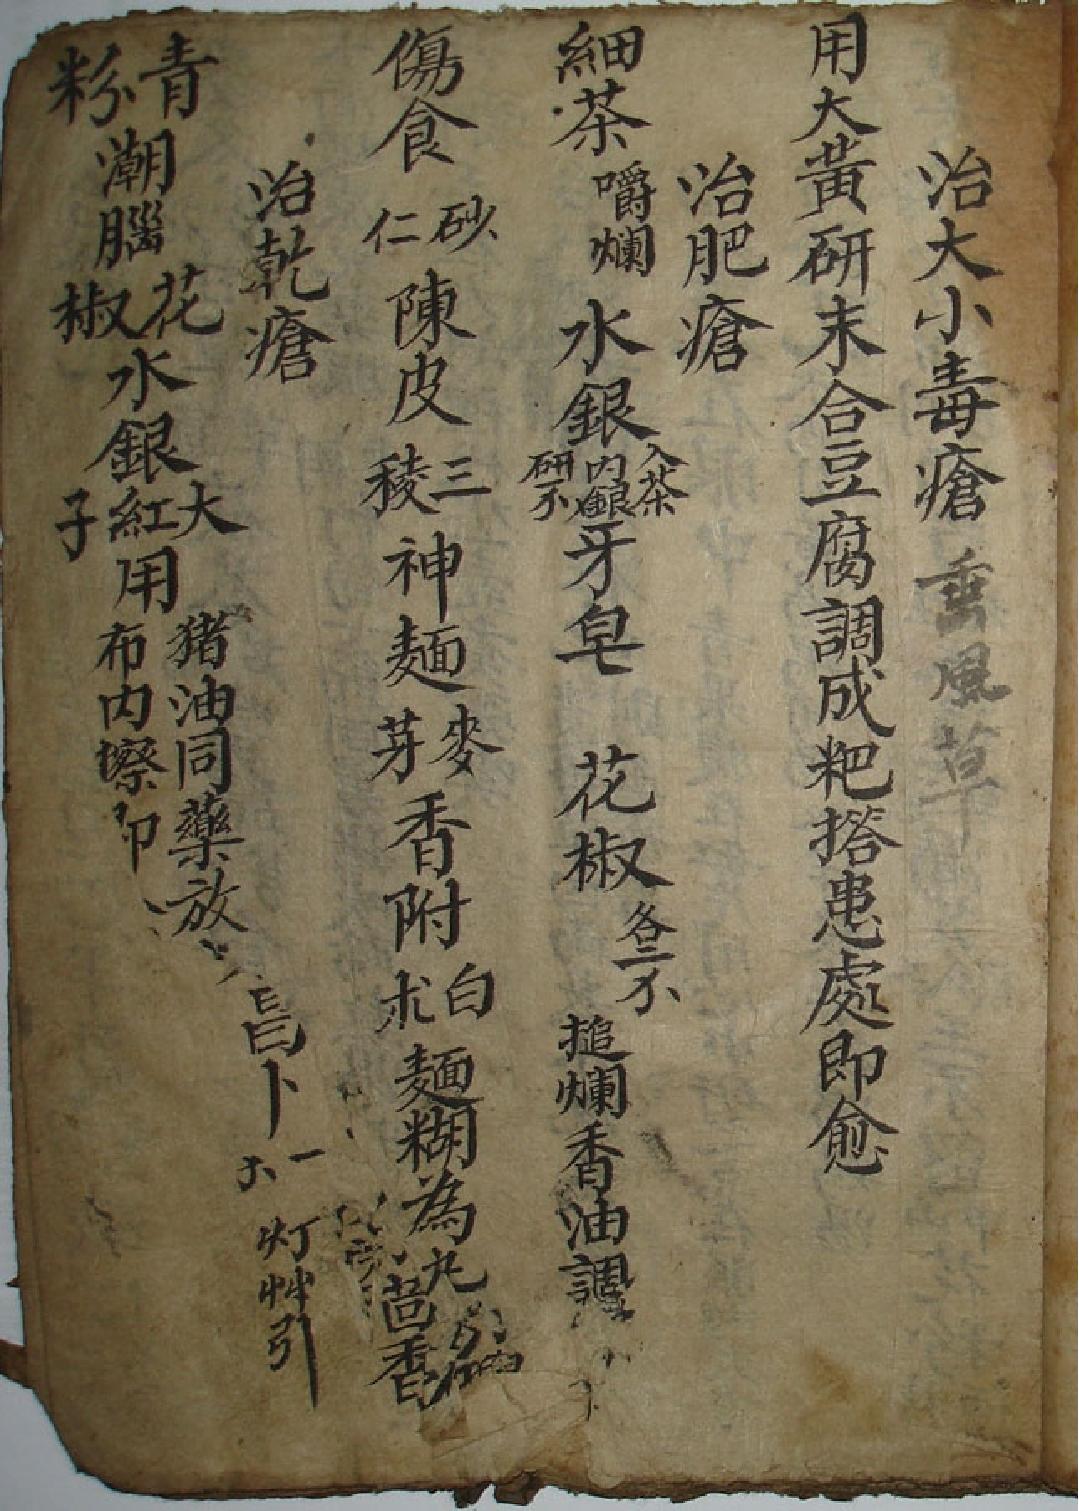 治大小毒瘡 風草
用大黃研末合豆腐調成粑搭患處即愈
治肥瘡
細茶嚼爛水銀入茶內銀研不牙皂 花椒各二不搥爛香油調
傷食砂仁陳皮三稜神麯麥芽香附白朮麵糊為丸茴香
治乾瘡
卜一
灯艸引
青粉潮腦花椒水銀大紅子用猪油同藥放布內擦即